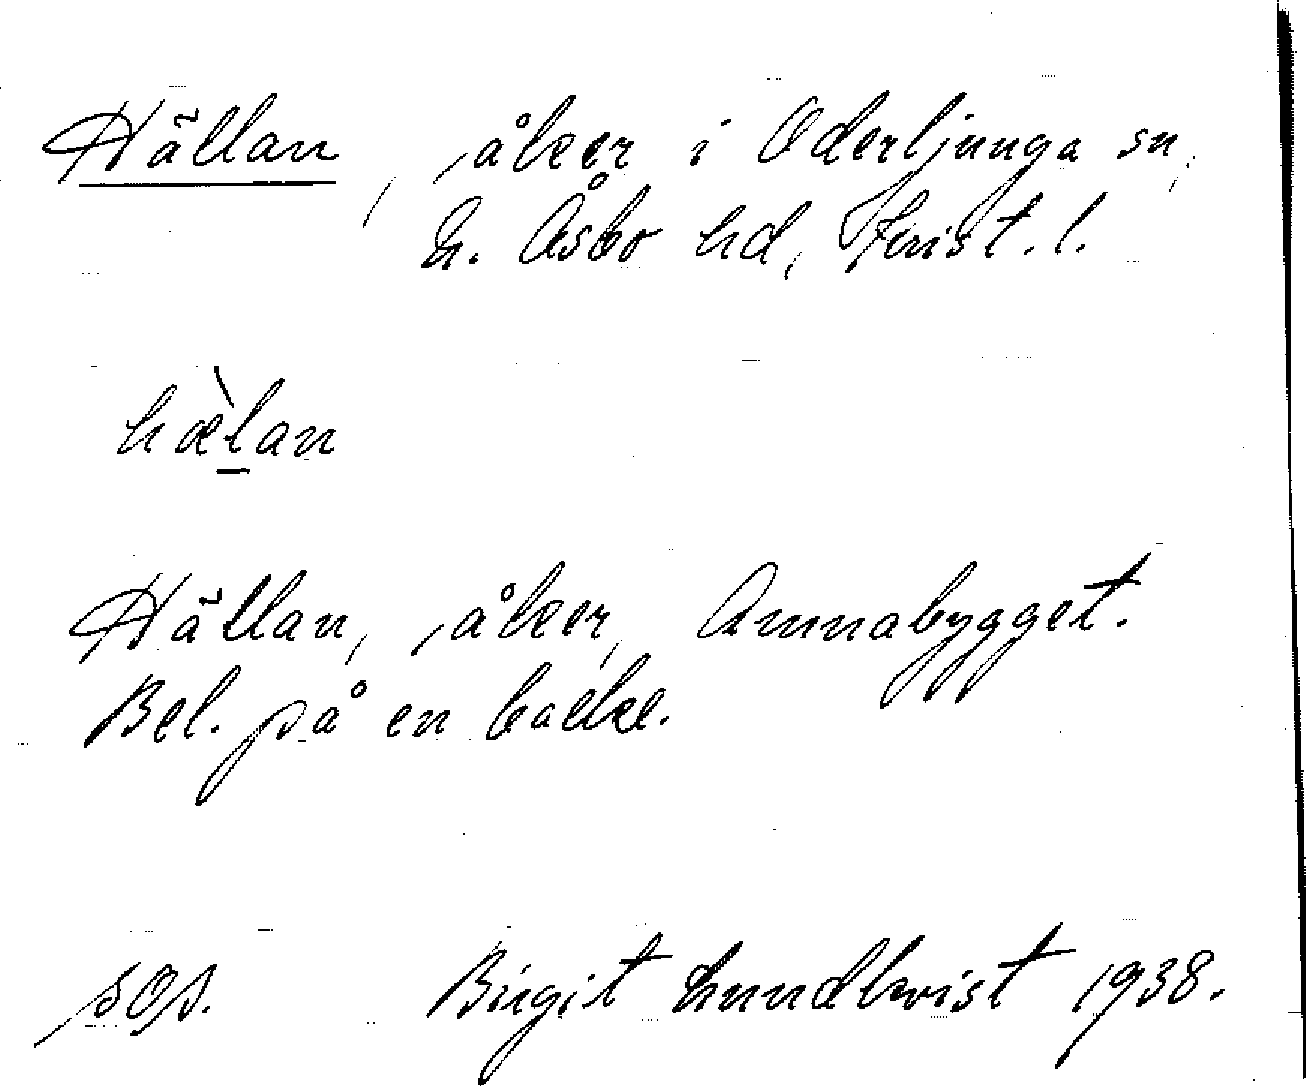 Hällan, åker i Oderljunga sn,
N. Åsbo hd, Krist. l.
hæ̀l̲an
Hällan, åker, Annabygget.
Bel. på en backe.
sos. Birgit Lundkvist 1938.